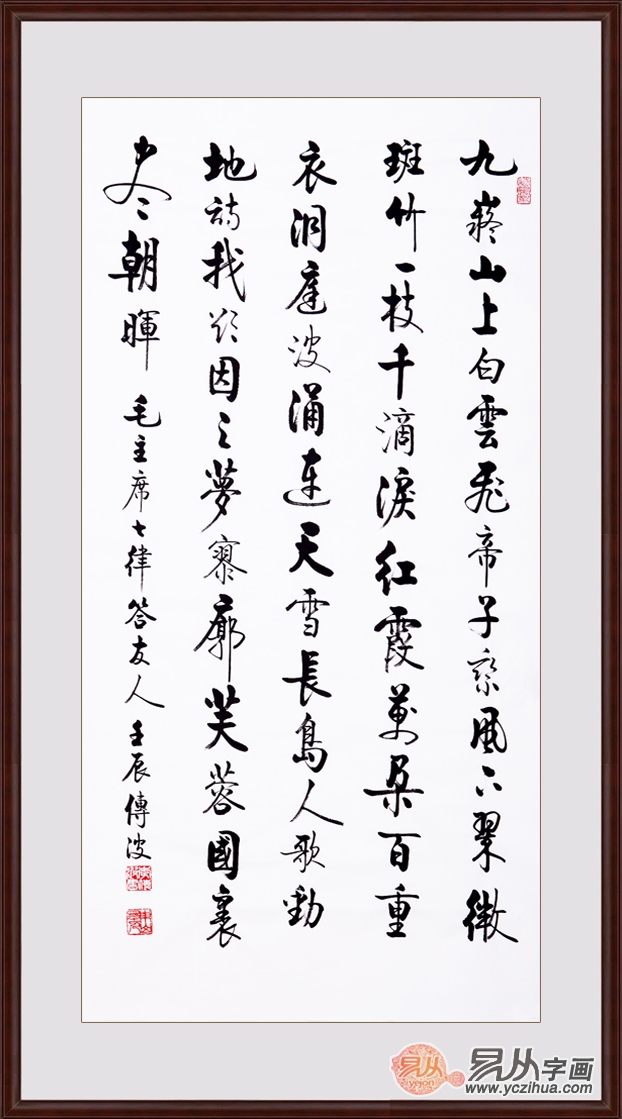 九嶷山上白雲飛帝子乘風下翠微
斑竹一枝千滴淚紅霞萬朵百重
衣洞庭波涌連天雪長島人歌動
地詩我欲因之夢寥廓芙蓉國裏
尽朝暉 毛主席七律答友人 壬辰傳波
易从字画
www.yczihua.com